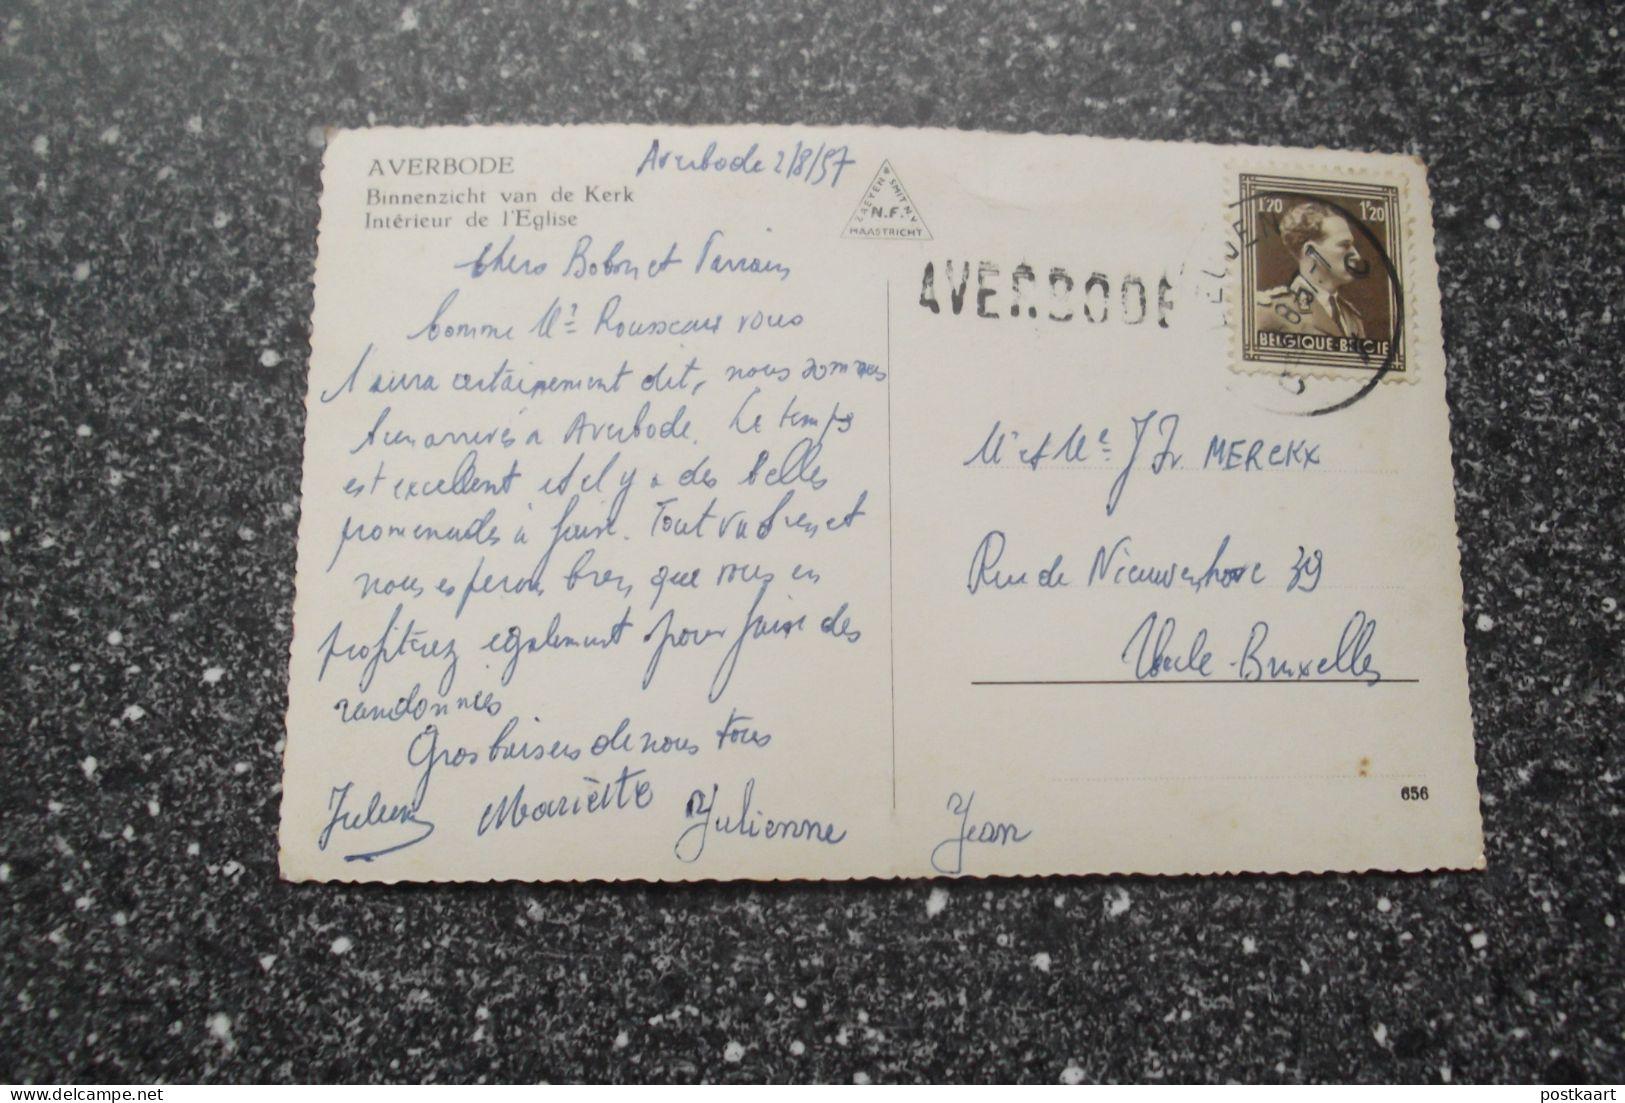 AVERBODE
Binnenzicht van de Kerk
Intérieur de l'Eglise
Averbode 2/8/57
ZAEYEN SMIT N.V.
N.F.
MAASTRICHT
Chers Bobon et Parrain
Comme Mr Rousseau vous
l'aura certainement dit, nous sommes
bien arrivés à Averbode. Le temps
est excellent et il y a des belles
promenades à faire. Tout va bien et
nous espérons bien que vous en
profiterez également pour faire des
randonnées
Gros baisers de nous tous
Mariette Julienne Jean
AVERBODE
1F20 1F20
BELGIQUE-BELGIE
Mr et Me J Fr. MERCKX
Rue de Nieuwenhove 39
Uccle-Bruxelles
656
postkaart